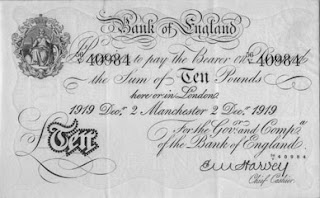 Bank of England
56/L 40984 to pay the Bearer on 56/L 40984
the Sum of Ten Pounds
here or in London
1919 Dec.r 2 Manchester 2 Dec.r 1919
For the Gov.r and Comp.a
of the Bank of England.
Ten
E M Harvey
Chief Cashier.